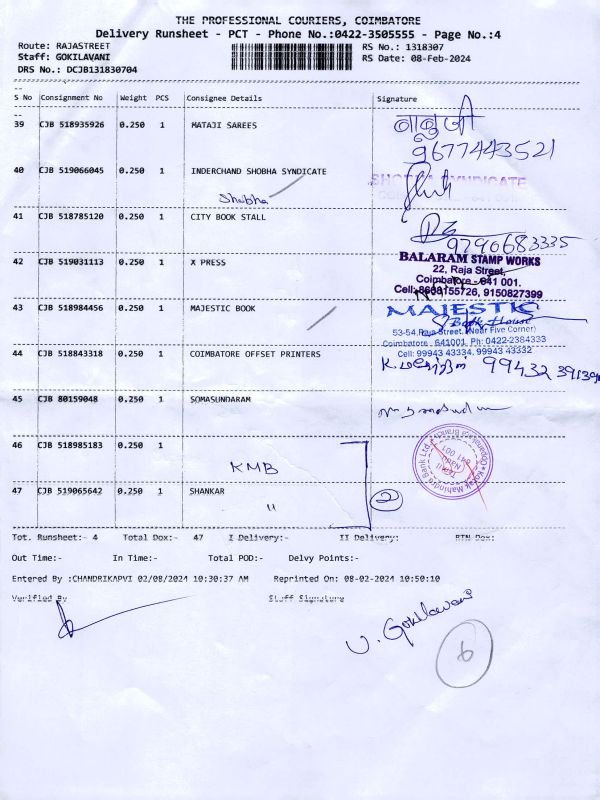 THE PROFESSIONAL COURIERS, COIMBATORE
Delivery Runsheet - PCT - Phone No.:0422-3505555 - Page No.:4
Route: RAJASTREET
RS No.: 1318307
Staff: GOKILAVANI
RS Date: 08-Feb-2024
DRS No.: DCJB131830704
S No Consignment No Weight PCS Consignee Details Signature
39 CJB 518935926 0.250 1 MATAJI SAREES
9677443521
40 CJB 519066045 0.250 1 INDERCHAND SHOBHA SYNDICATE
Shobha
SHOBHA SYNDICATE
41 CJB 518785120 0.250 1 CITY BOOK STALL
9790683335
42 CJB 519031113 0.250 1 X PRESS
BALARAM STAMP WORKS
22, Raja Street,
Coimbatore - 641 001.
Cell: 8608155726, 9150827399
43 CJB 518984456 0.250 1 MAJESTIC BOOK
MAJESTIC
Book House
53-54, Raja Street, (Near Five Corner)
Coimbatore - 641001. Ph: 0422-2384333
Cell: 99943 43334, 99943 43332
44 CJB 518843318 0.250 1 COIMBATORE OFFSET PRINTERS
99432 39139
45 CJB 80159048 0.250 1 SOMASUNDARAM
46 CJB 518985183 0.250 1
KMB
Kotak Mahindra Bank Ltd.
641 001
47 CJB 519065642 0.250 1 SHANKAR
"
2
Tot. Runsheet:- 4 Total Dox:- 47 I Delivery:- II Delivery: RTN Dox:
Out Time:- In Time:- Total POD:- Delvy Points:-
Entered By :CHANDRIKAPVI 02/08/2024 10:30:37 AM Reprinted On: 08-02-2024 10:50:10
Verified By Staff Signature
U. Gokilavani
6